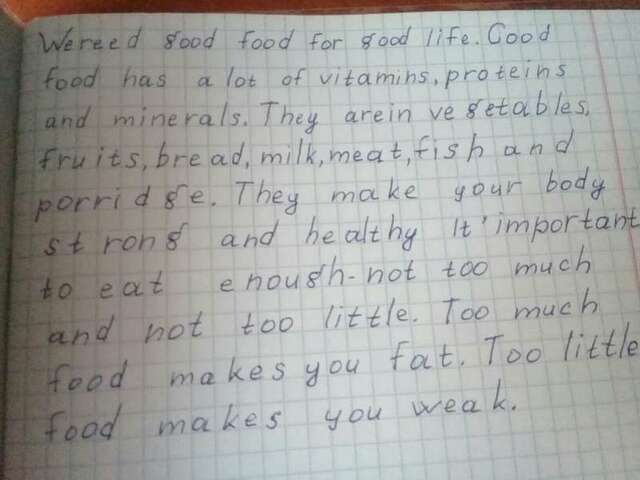 Wereed good food for good life. Good
food has a lot of vitamins, proteins
and minerals. They arein vegetables,
fruits, bread, milk, meat, fish and
porridge. They make your body
strong and healthy It' important
to eat enough-not too much
and not too little. Too much
food makes you fat. Too little
food makes you weak.